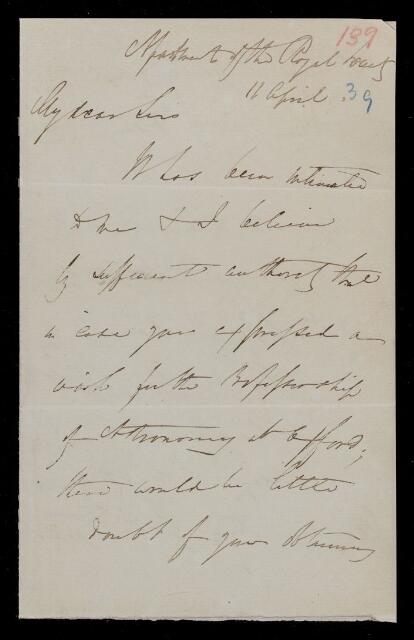 139
Apartments of the Royal Society
11 April .39
My dear Sir
It has been intimated
to me & I believe
by sufficient authority that
in case you expressed a
wish for the Professorship
of Astronomy at Oxford,
there would be little
doubt of your obtaining